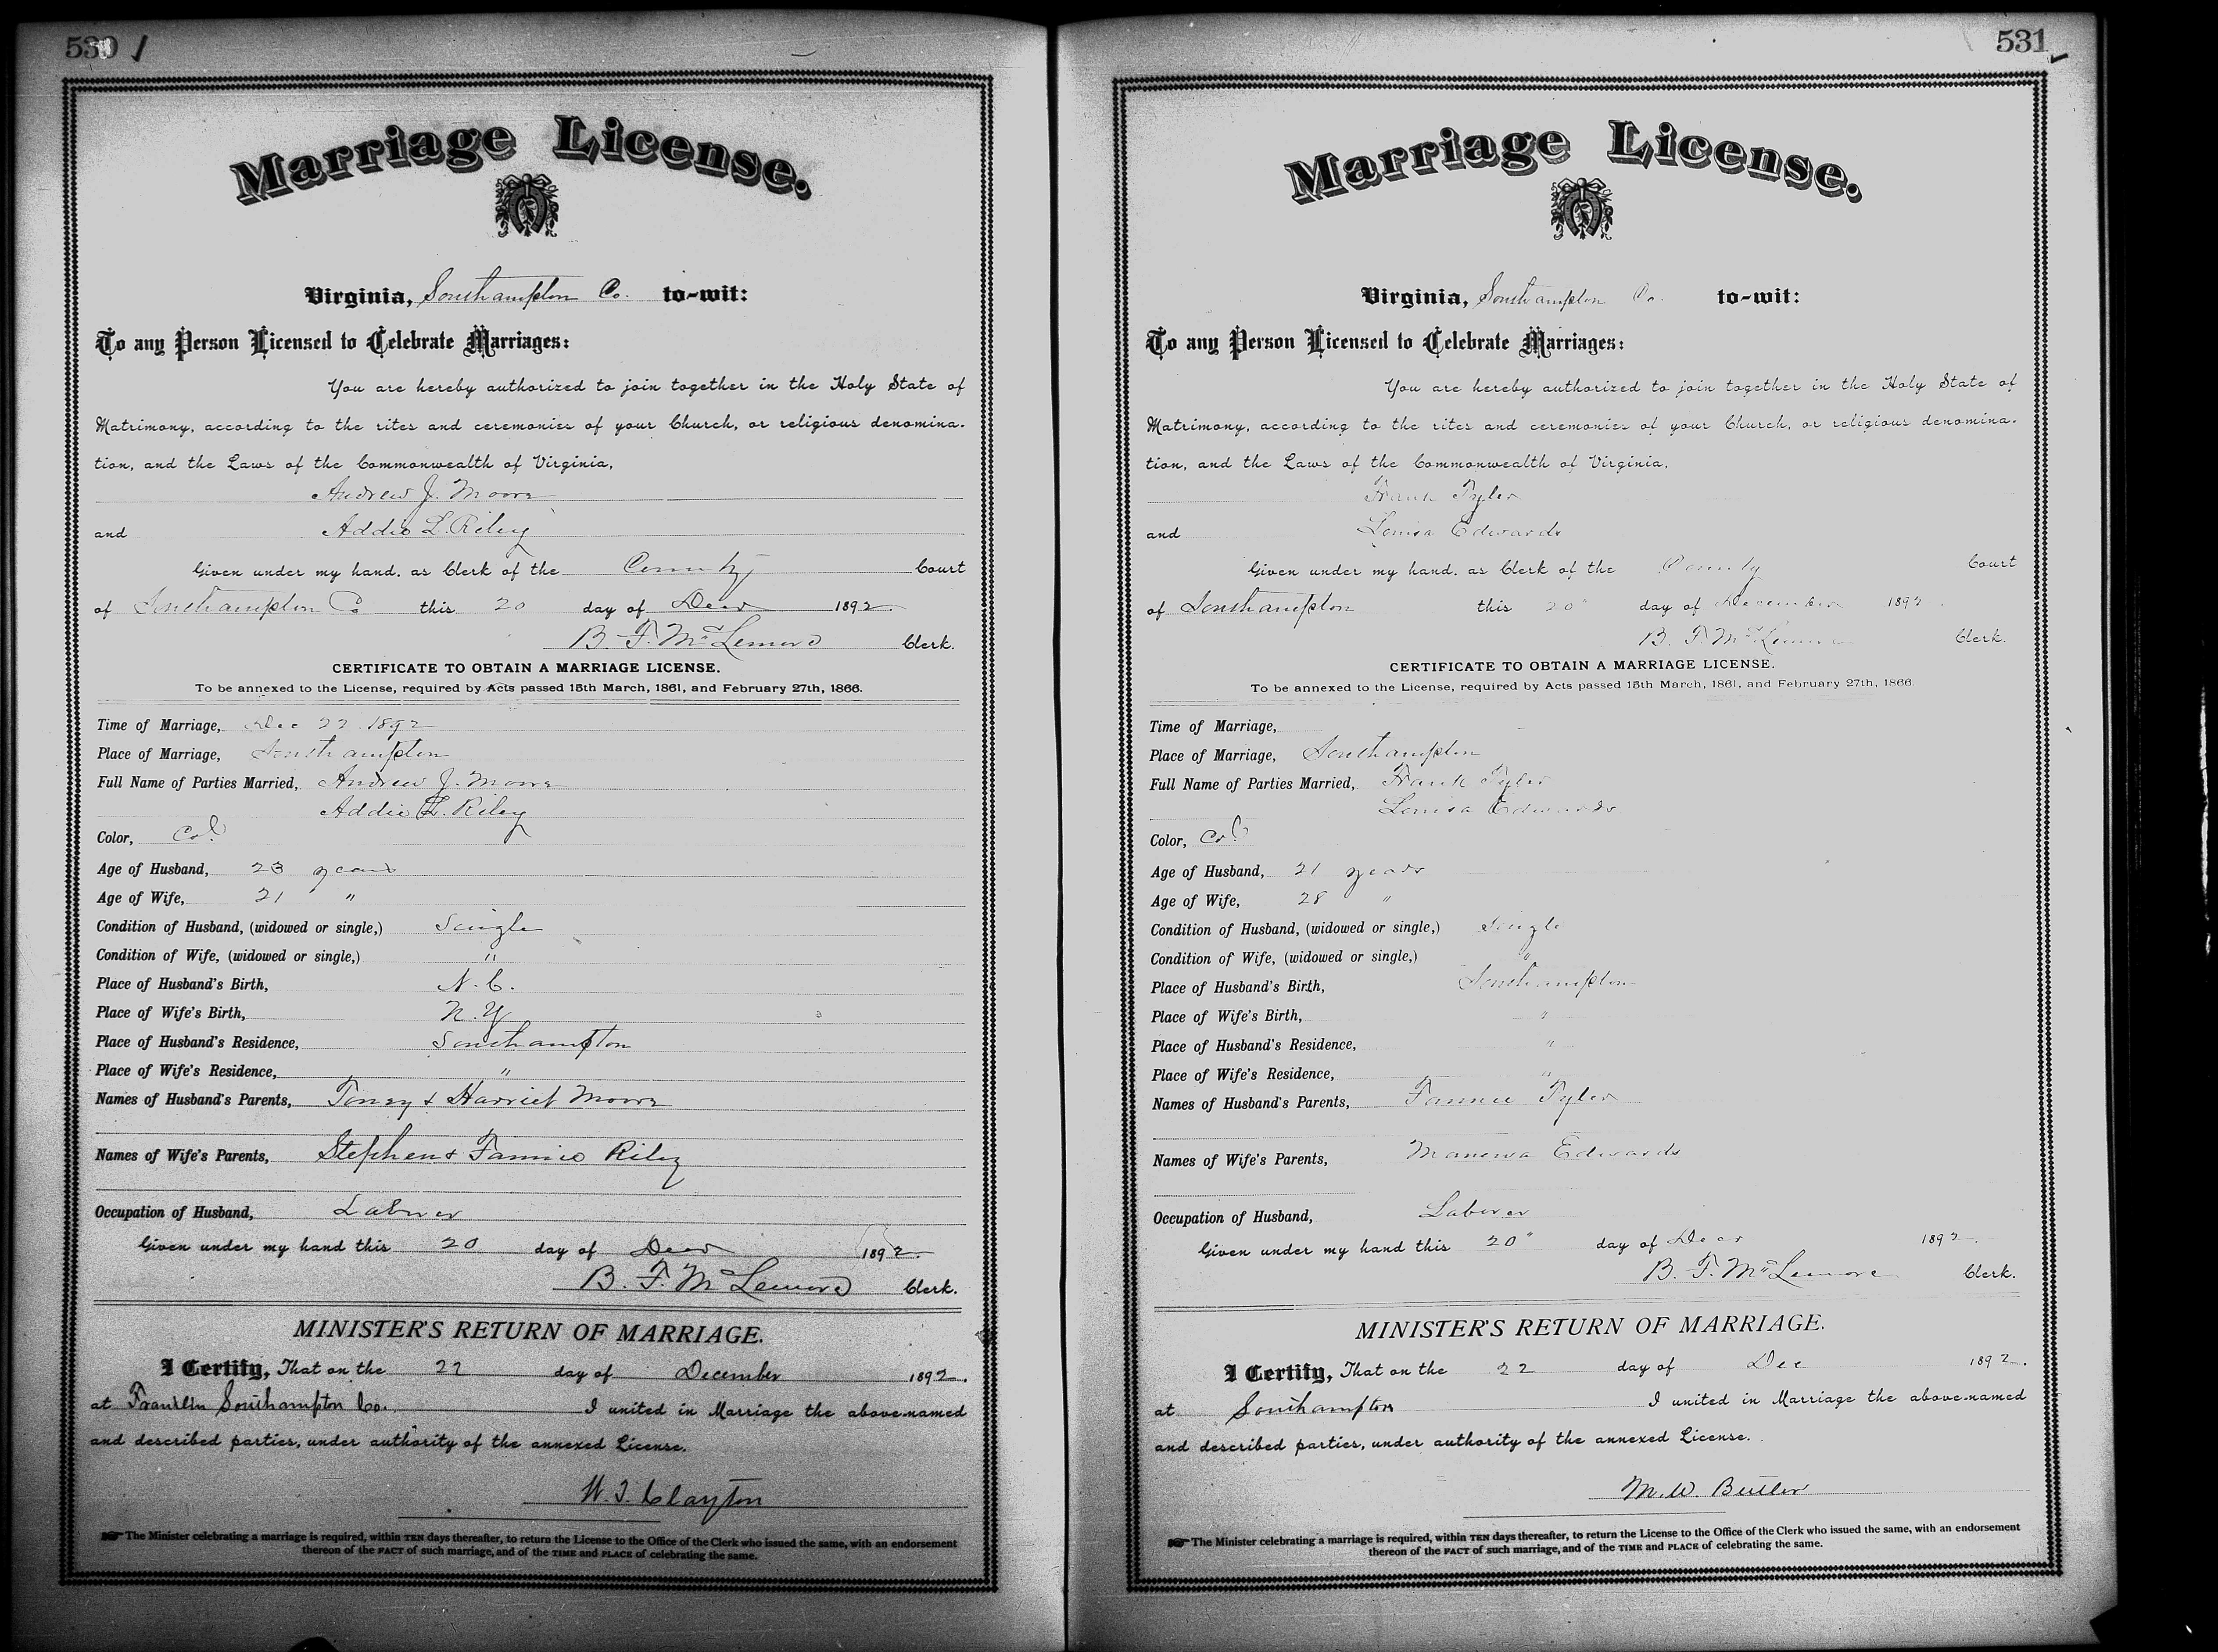 530
Marriage License.
Virginia, Southampton Co. to-wit:
To any Person Licensed to Celebrate Marriages:
You are hereby authorized to join together in the Holy State of
Matrimony, according to the rites and ceremonies of your Church, or religious denomina-
tion, and the Laws of the Commonwealth of Virginia,
Andrew J. Moore
and Addie L. Riley
Given under my hand, as Clerk of the County Court
of Southampton Co this 20 day of Decr 1892
B. F. McLemore Clerk.
CERTIFICATE TO OBTAIN A MARRIAGE LICENSE.
To be annexed to the License, required by Acts passed 15th March, 1861, and February 27th, 1866.
Time of Marriage, Dec 22 1892
Place of Marriage, Southampton
Full Name of Parties Married, Andrew J. Moore
Addie L. Riley
Color, Cold
Age of Husband, 23 years
Age of Wife, 21 "
Condition of Husband, (widowed or single,) Single
Condition of Wife, (widowed or single,) "
Place of Husband's Birth, N. C.
Place of Wife's Birth, N. Y
Place of Husband's Residence, Southampton
Place of Wife's Residence, "
Names of Husband's Parents, Toney & Harriet Moore
Names of Wife's Parents, Stephen & Fannie Riley
Occupation of Husband, Laborer
Given under my hand this 20 day of Decr 1892
B. F. McLemore Clerk.
MINISTER'S RETURN OF MARRIAGE.
I Certify, That on the 22 day of December 1892.
at Franklin Southampton Co. I united in Marriage the above-named
and described parties, under authority of the annexed License.
W. I. Clayton
The Minister celebrating a marriage is required, within TEN days thereafter, to return the License to the Office of the Clerk who issued the same, with an endorsement
thereon of the FACT of such marriage, and of the TIME and PLACE of celebrating the same.
531
Marriage License.
Virginia, Southampton Co. to-wit:
To any Person Licensed to Celebrate Marriages:
You are hereby authorized to join together in the Holy State of
Matrimony, according to the rites and ceremonies of your Church, or religious denomina-
tion, and the Laws of the Commonwealth of Virginia,
Frank Tyler
and Louisa Edwards
Given under my hand, as Clerk of the County Court
of Southampton this 20" day of December 1892
B. F. McLemore Clerk.
CERTIFICATE TO OBTAIN A MARRIAGE LICENSE.
To be annexed to the License, required by Acts passed 15th March, 1861, and February 27th, 1866.
Time of Marriage,
Place of Marriage, Southampton
Full Name of Parties Married, Frank Tyler
Louisa Edwards
Color, Cold
Age of Husband, 21 years
Age of Wife, 28 "
Condition of Husband, (widowed or single,) Single
Condition of Wife, (widowed or single,) "
Place of Husband's Birth, Southampton
Place of Wife's Birth, "
Place of Husband's Residence, "
Place of Wife's Residence, "
Names of Husband's Parents, Fannie Tyler
Names of Wife's Parents, Edwards
Occupation of Husband, Laborer
Given under my hand this 20" day of Decr 1892.
B. F. McLemore Clerk.
MINISTER'S RETURN OF MARRIAGE.
I Certify, That on the 22 day of Dec 1892.
at Southampton I united in Marriage the above-named
and described parties, under authority of the annexed License.
M. W. Butler
The Minister celebrating a marriage is required, within TEN days thereafter, to return the License to the Office of the Clerk who issued the same, with an endorsement
thereon of the FACT of such marriage, and of the TIME and PLACE of celebrating the same.